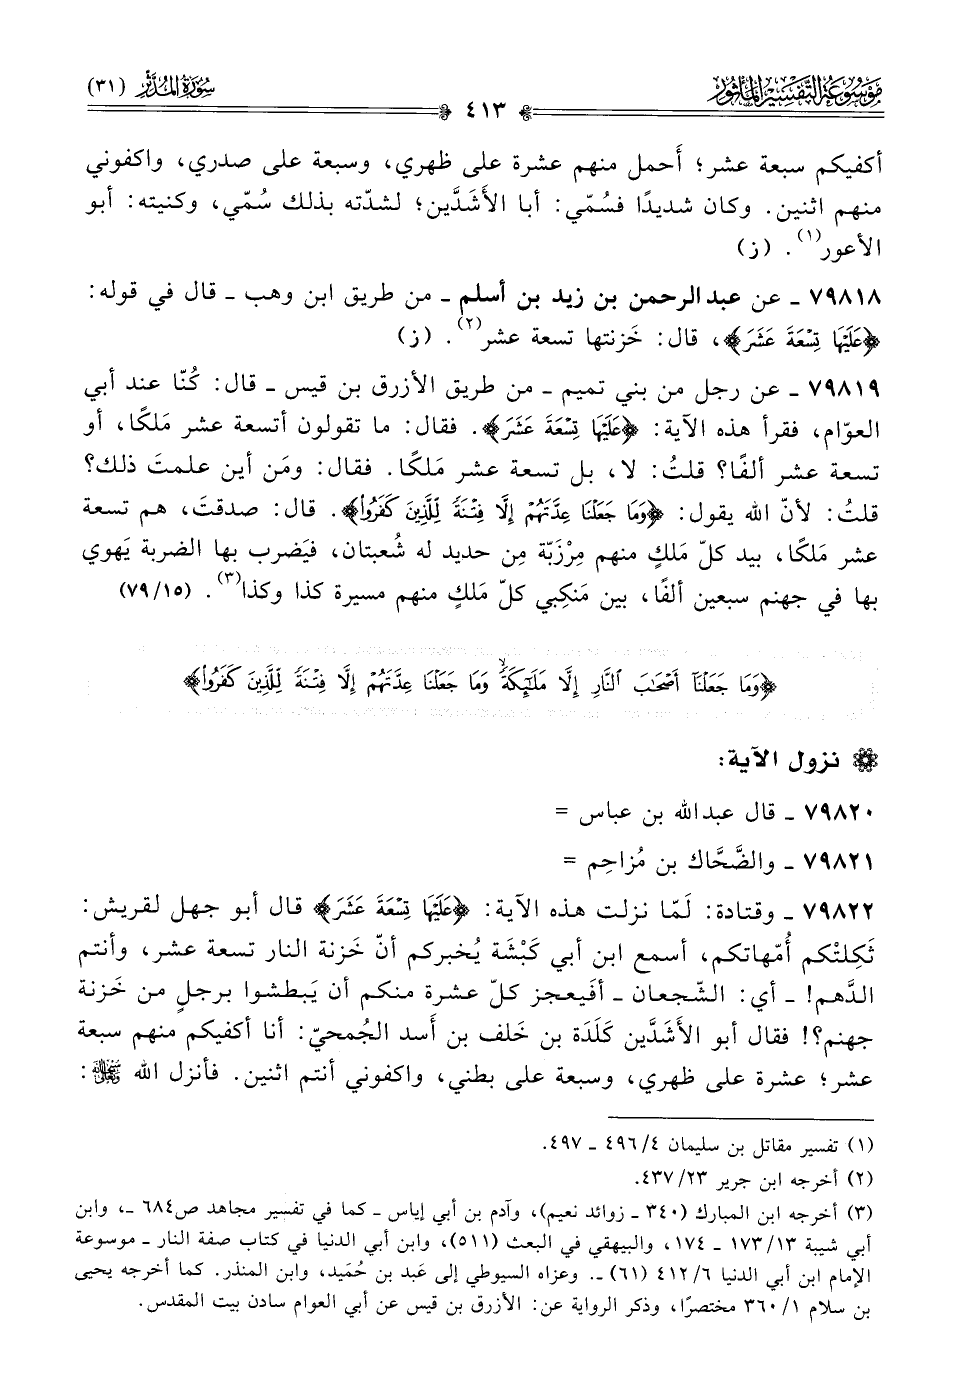 مَوْسُوعَةُ التَّفْسِيرِ المَأْثُورِ
سُورَةُ المُدَّثِّر (٣١)
٤١٣
أكفيكم سبعة عشر؛ أَحمل منهم عشرة على ظهري، وسبعة على صدري، واكفوني
منهم اثنين. وكان شديدًا فسُمّي: أبا الأَشَدَّين؛ لشدّته بذلك سُمّي، وكنيته: أبو
الأعور(١). (ز)
٧٩٨١٨ ـ عن عبدالرحمن بن زيد بن أسلم ـ من طريق ابن وهب ـ قال في قوله:
﴿عَلَيْهَا تِسْعَةَ عَشَرَ﴾، قال: خَزنتها تسعة عشر(٢). (ز)
٧٩٨١٩ ـ عن رجل من بني تميم ـ من طريق الأزرق بن قيس ـ قال: كُنّا عند أبي
العوّام، فقرأ هذه الآية: ﴿عَلَيْهَا تِسْعَةَ عَشَرَ﴾. فقال: ما تقولون أتسعة عشر مَلكًا، أو
تسعة عشر ألفًا؟ قلتُ: لا، بل تسعة عشر مَلكًا. فقال: ومَن أين علمتَ ذلك؟
قلتُ: لأنّ الله يقول: ﴿وَمَا جَعَلْنَا عِدَّتَهُمْ إِلَّا فِتْنَةً لِّلَّذِينَ كَفَرُوا۟﴾. قال: صدقتَ، هم تسعة
عشر مَلكًا، بيد كلّ مَلكٍ منهم مِرْزَبّة مِن حديد له شُعبتان، فيَضرب بها الضربة يَهوي
بها في جهنم سبعين ألفًا، بين مَنكِبي كلّ مَلكٍ منهم مسيرة كذا وكذا(٣). (٧٩/١٥)
﴿وَمَا جَعَلْنَآ أَصْحَٰبَ ٱلنَّارِ إِلَّا مَلَٰٓئِكَةً ۙ وَمَا جَعَلْنَا عِدَّتَهُمْ إِلَّا فِتْنَةً لِّلَّذِينَ كَفَرُوا۟﴾
نزول الآية:
٧٩٨٢٠ ـ قال عبدالله بن عباس =
٧٩٨٢١ ـ والضَّحَّاك بن مُزاحِم =
٧٩٨٢٢ ـ وقتادة: لَمّا نزلت هذه الآية: ﴿عَلَيْهَا تِسْعَةَ عَشَرَ﴾ قال أبو جهل لقريش:
ثَكِلتْكم أُمّهاتكم، أسمع ابن أبي كَبْشَة يُخبركم أنّ خَزنة النار تسعة عشر، وأنتم
الدَّهم! ـ أي: الشّجعان ـ أفَيعجز كلّ عشرة منكم أن يَبطشوا برجلٍ من خَزنة
جهنم؟! فقال أبو الأَشَدَّين كَلَدَة بن خَلف بن أَسد الجُمحيّ: أنا أكفيكم منهم سبعة
عشر؛ عشرة على ظهري، وسبعة على بطني، واكفوني أنتم اثنين. فأنزل الله ﷻ:
(١) تفسير مقاتل بن سليمان ٤٩٦/٤ ـ ٤٩٧.
(٢) أخرجه ابن جرير ٤٣٧/٢٣.
(٣) أخرجه ابن المبارك (٣٤٠ ـ زوائد نعيم)، وآدم بن أبي إياس ـ كما في تفسير مجاهد ص٦٨٤ ـ، وابن
أبي شيبة ١٧٣/١٣ ـ ١٧٤، والبيهقي في البعث (٥١١)، وابن أبي الدنيا في كتاب صفة النار ـ موسوعة
الإمام ابن أبي الدنيا ٤١٢/٦ (٦١) ـ. وعزاه السيوطي إلى عَبد بن حُمَيد، وابن المنذر. كما أخرجه يحيى
بن سلام ٣٦٠/١ مختصرًا، وذكر الرواية عن: الأزرق بن قيس عن أبي العوام سادن بيت المقدس.